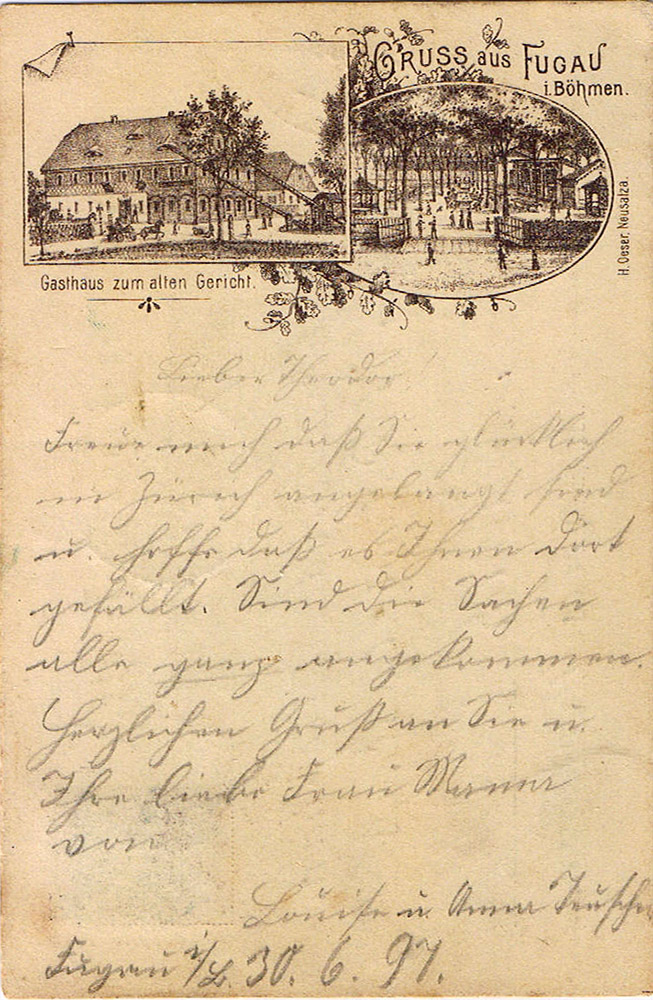 GRUSS aus FUGAU
i. Böhmen.
H. Oeser, Neusalza.
Gasthaus zum alten Gericht.
Lieber Theodor!
Freue mich daß Sie glücklich
in Zürich angelangt sind
u. hoffe daß es Ihnen dort
gefällt. Sind die Sachen
alle ganz angekommen.
Herzlichen Gruß an Sie u.
Ihre liebe Frau Mama
von
Louise u. Anna
Fugau i/B. 30. 6. 97.